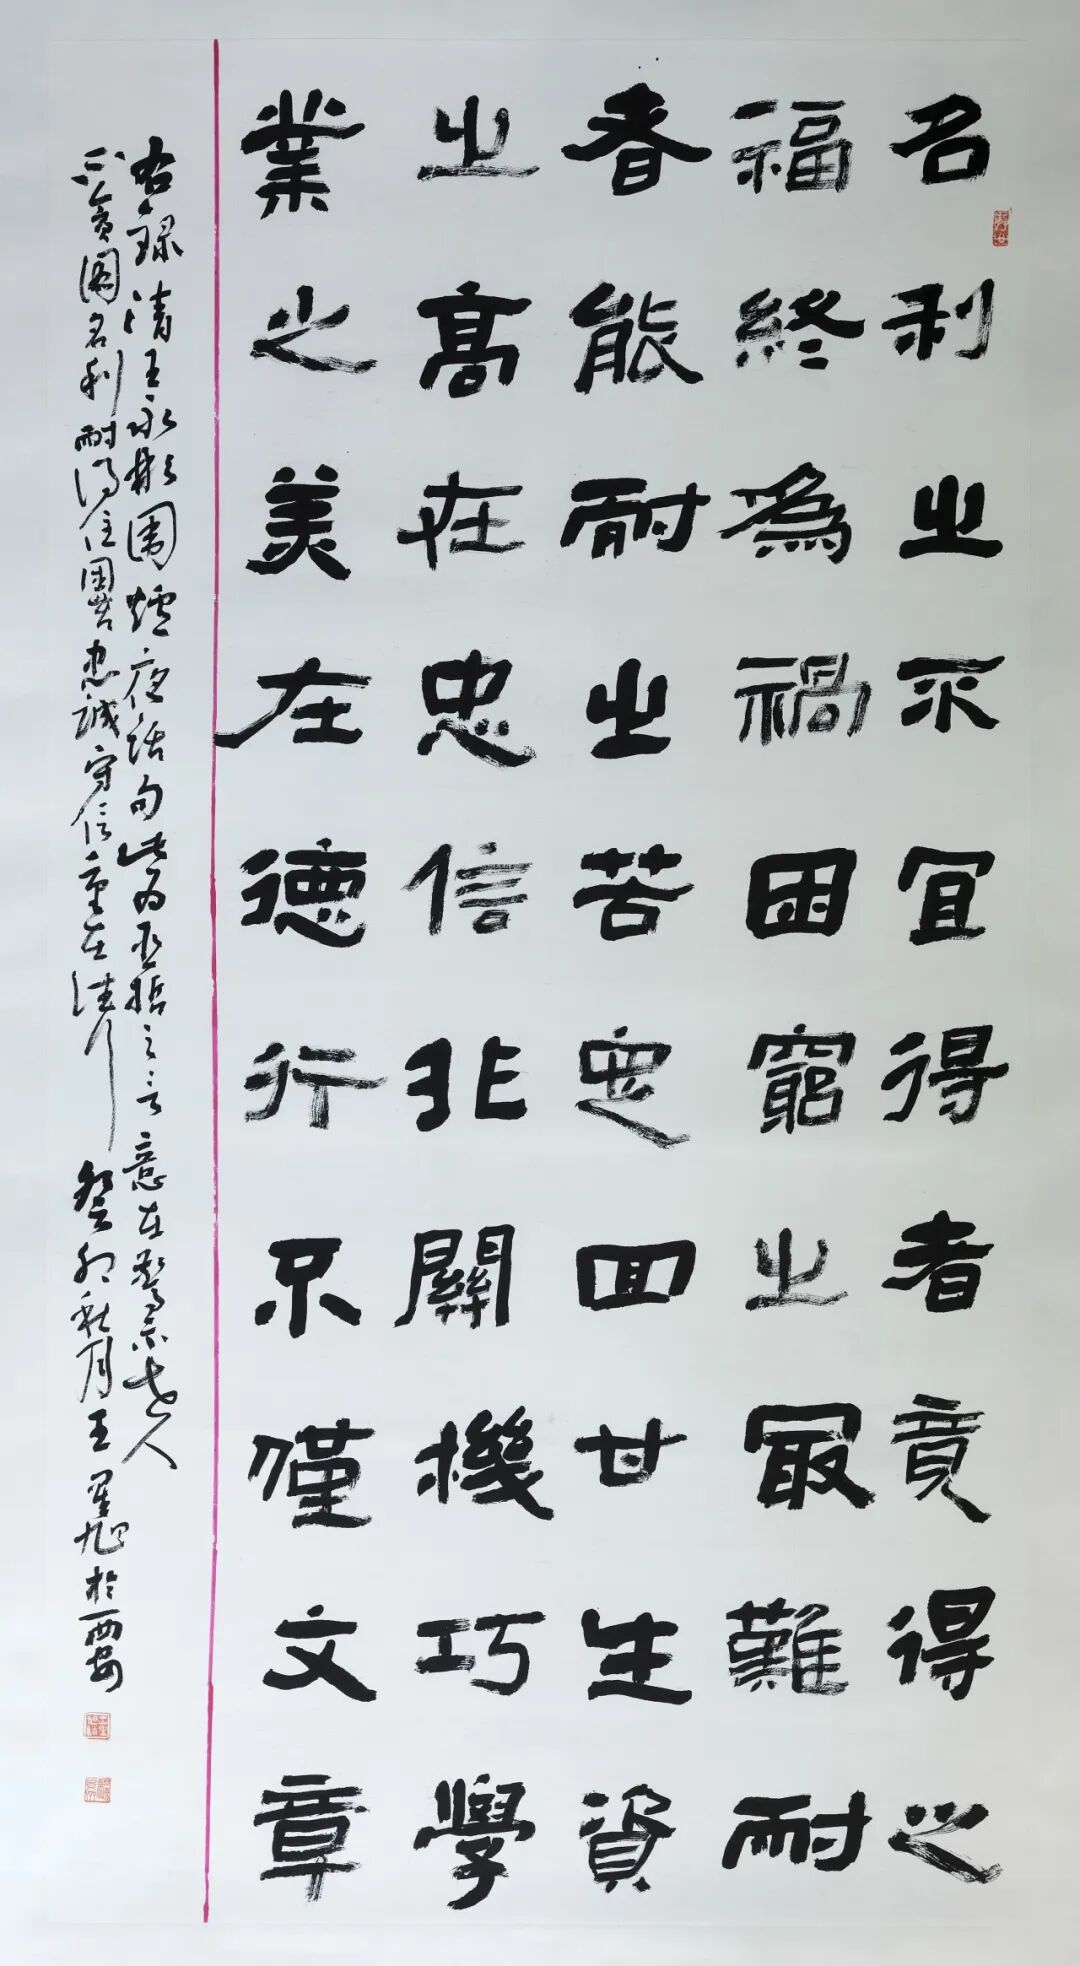 名利之不宜得者竟得之
福終為禍困窮之最難耐
者能耐之苦定回甘生資
之高在忠信非關機巧學
業之美在德行不僅文章
右録清王永彬圍爐夜話句此為哲之言意在警示世人
不貪圖名利耐得住困苦忠誠守信重在德行 癸卯秋月王旭於西安